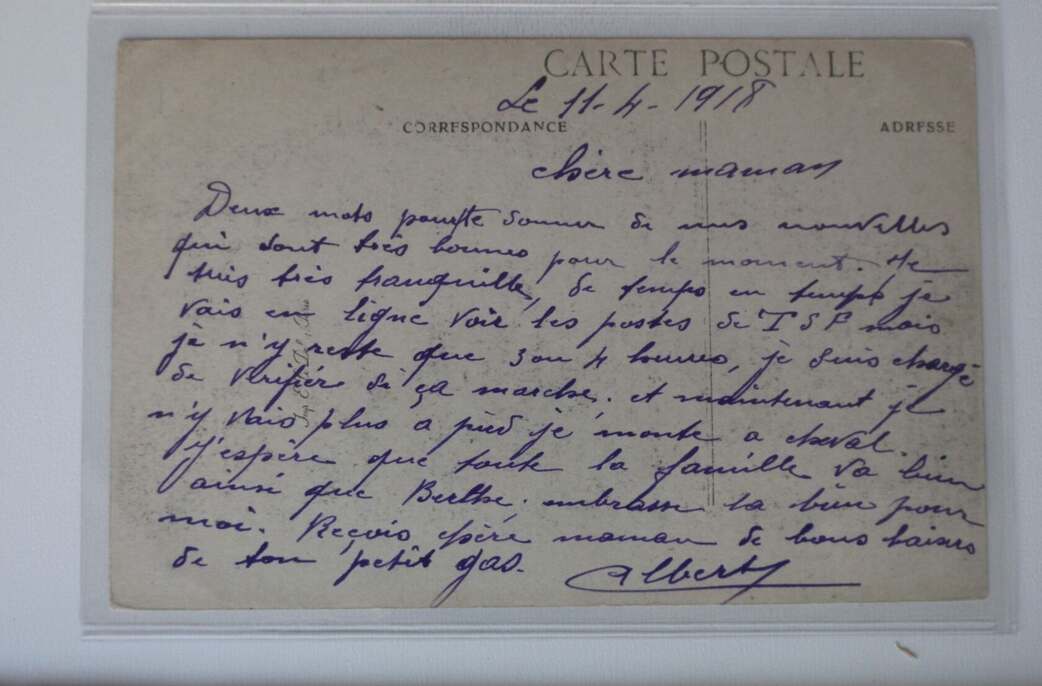 CARTE POSTALE
Le 11-4-1918
CORRESPONDANCE
ADRESSE
chère maman
Deux mots pour te donner de mes nouvelles
qui sont très bonnes pour le moment. Je
suis très tranquille, de temps en temps je
vais en ligne voir les postes de T S F mais
je n'y reste que 3 ou 4 heures, je suis chargé
de vérifier si ça marche. et maintenant je
n'y vais plus à pied je monte a cheval.
J'espère que toute la famille va bien
ainsi que Berthe. embrasse la bien pour
moi. Reçois chère maman de bons baisers
de ton petit gas.
Albert